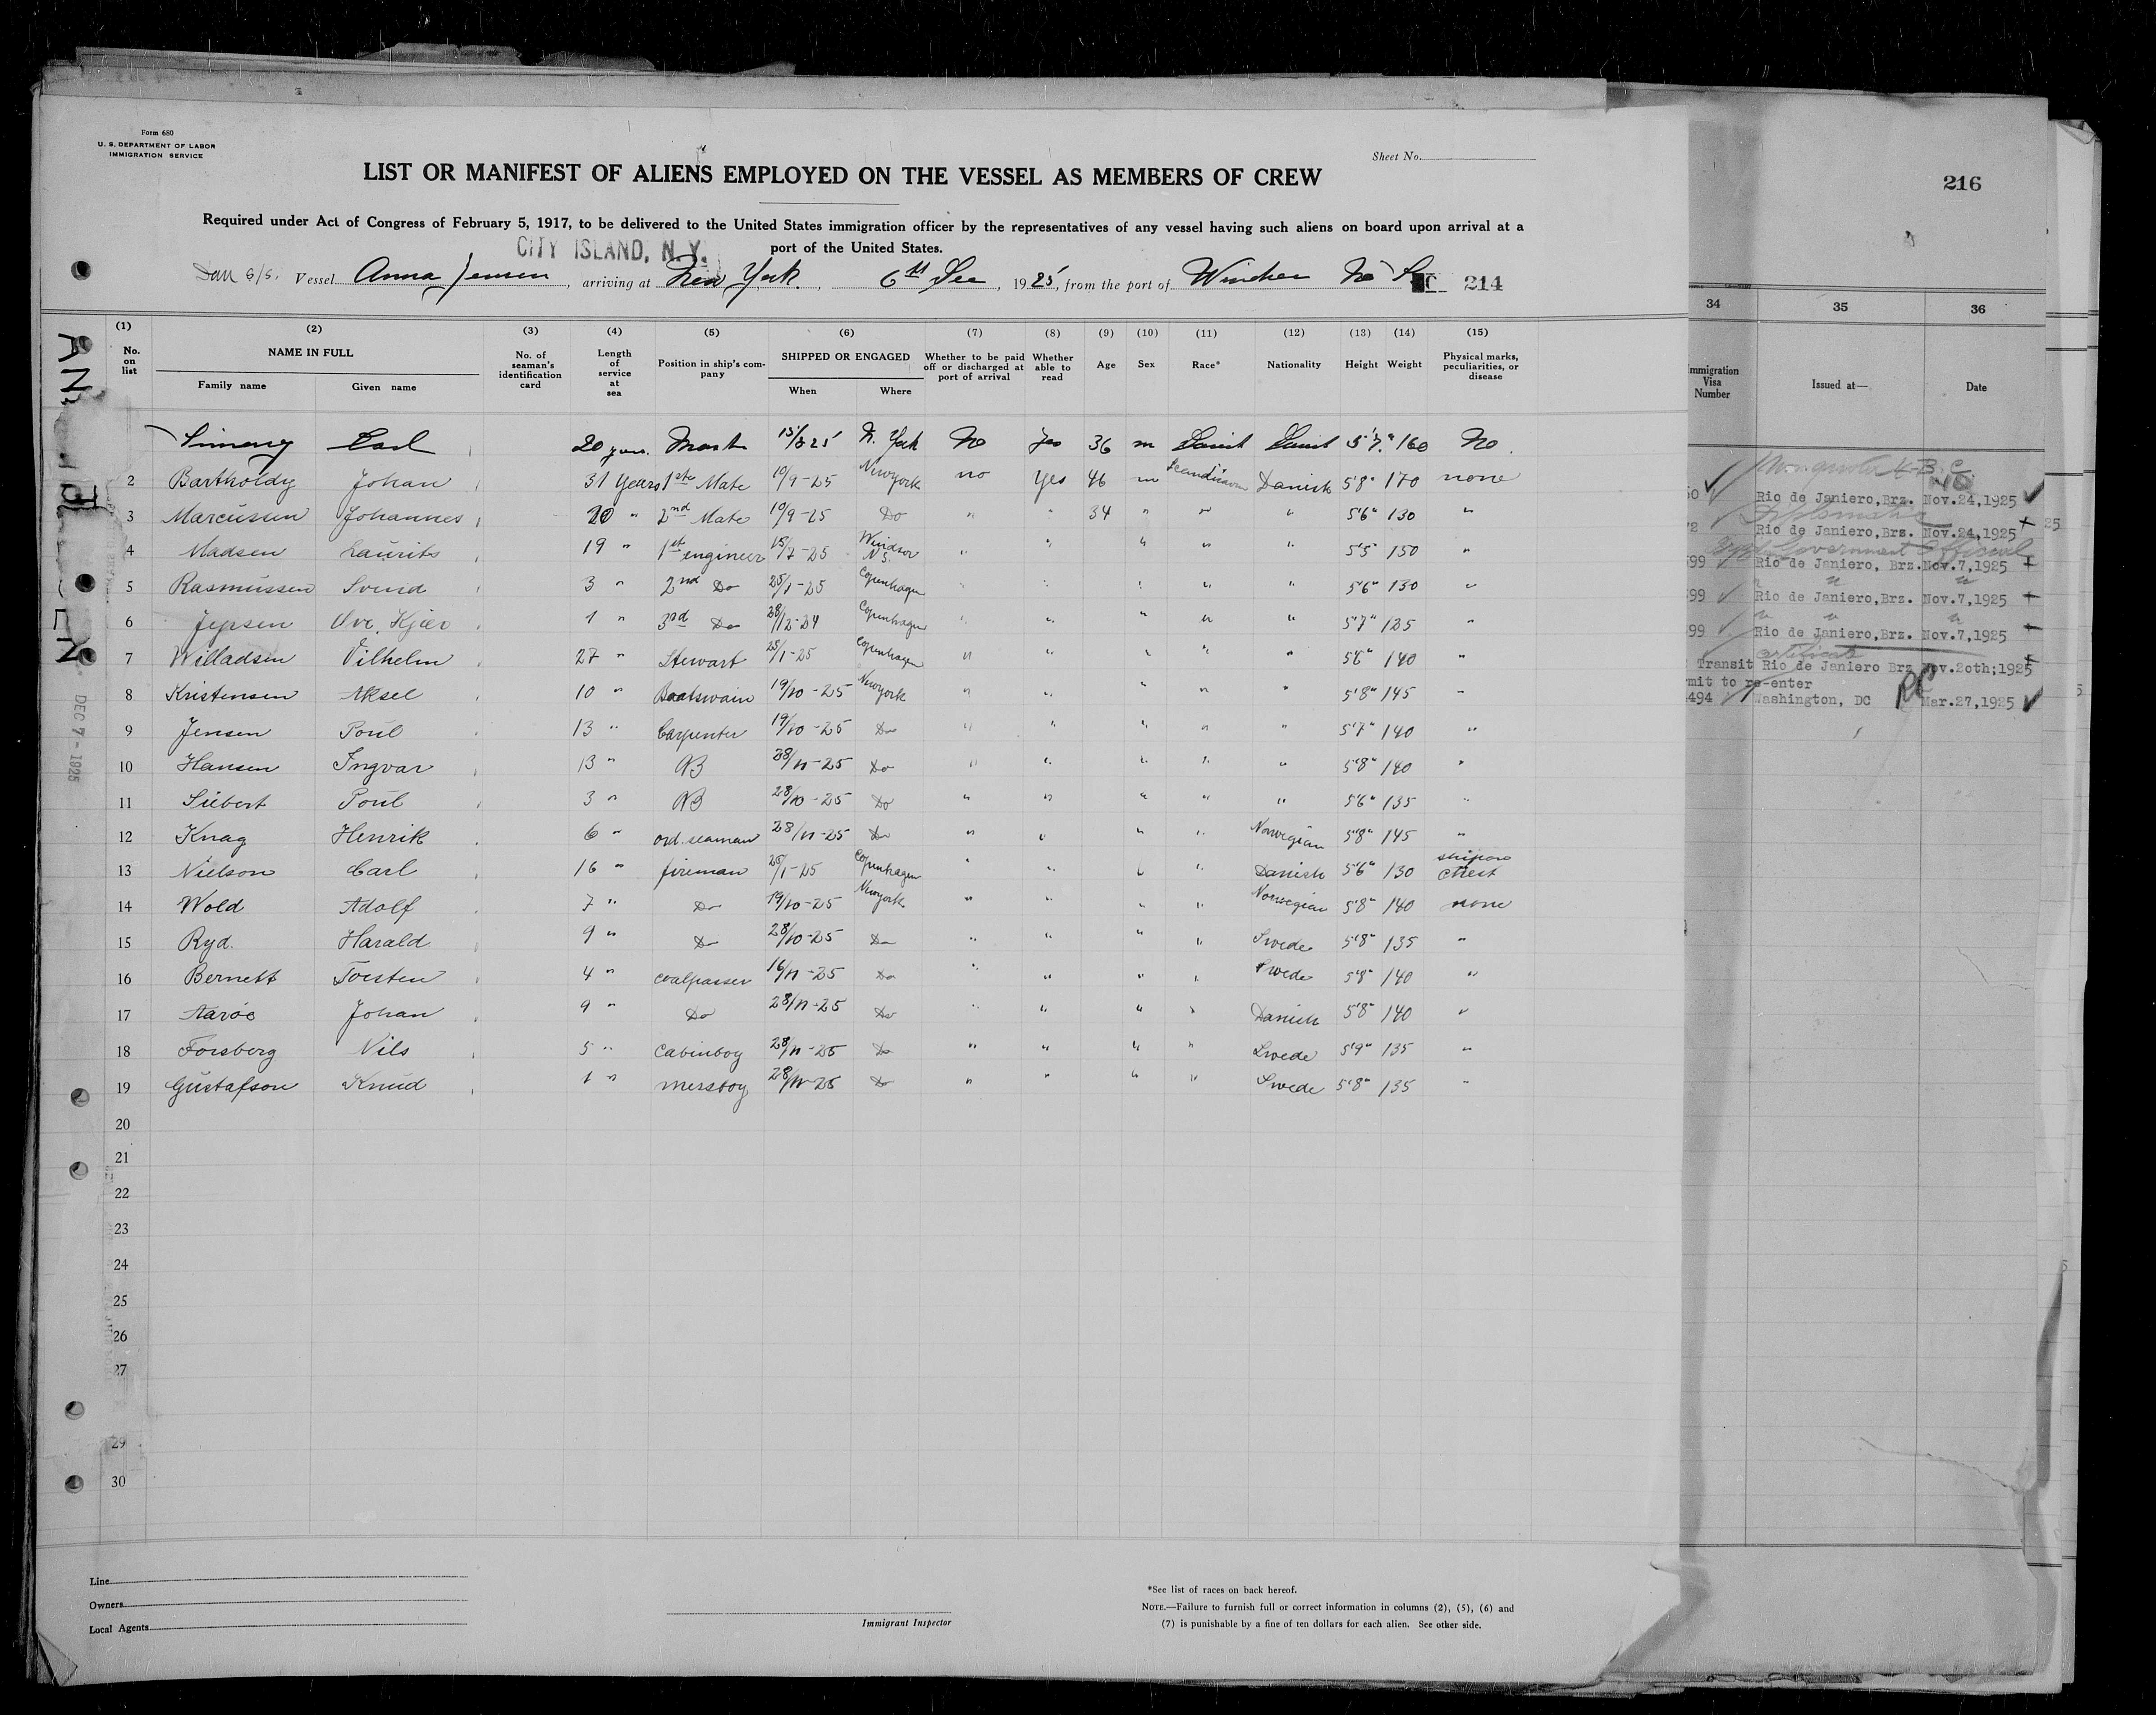 Form 680
U. S. DEPARTMENT OF LABOR
IMMIGRATION SERVICE
Sheet No.
LIST OR MANIFEST OF ALIENS EMPLOYED ON THE VESSEL AS MEMBERS OF CREW
Required under Act of Congress of February 5, 1917, to be delivered to the United States immigration officer by the representatives of any vessel having such aliens on board upon arrival at a
port of the United States.
CITY ISLAND, N.Y.
Dan S/S. Vessel Anna Jensen, arriving at New York, 6th Dec, 1925, from the port of 214
(1) (2) (3) (4) (5) (6) (7) (8) (9) (10) (11) (12) (13) (14) (15)
No. on list NAME IN FULL Family name Given name No. of seaman's identification card Length of service at sea Position in ship's company SHIPPED OR ENGAGED When Where Whether to be paid off or discharged at port of arrival Whether able to read Age Sex Race* Nationality Height Weight Physical marks, peculiarities, or disease
Carl 20 years N. York No Yes 36 m 5'7" 160 No
2 Bartholdy Johan 31 Years 1ste Mate 10/9-25 Newyork no Yes 46 m Scandinavian Danish 5'8" 170 none
3 Marcussen Johannes 20 " 2nd Mate 10/9-25 Do " " 34 " " " 5'6" 130 "
4 Madsen Laurits 19 " 1st engineer 15/7-25 Windsor N.S. " " " " " 5'5" 150 "
5 Rasmussen Svend 3 " 2nd Do 25/1-25 Copenhagen " " " " " 5'6" 130 "
6 Jepsen Ove Kjær 1 " 3rd Do 28/12-24 Copenhagen " " " " " 5'7" 135 "
7 Willadsen Vilhelm 27 " Stewart 25/1-25 Copenhagen " " " " " 5'6" 140 "
8 Kristensen Aksel 10 " Boatswain 19/10-25 Newyork " " " " " 5'8" 145 "
9 Jensen Poul 13 " Carpenter 19/10-25 Do " " " " " 5'7" 140 "
10 Hansen Ingvar 13 " AB 28/11-25 Do " " " " " 5'8" 140 "
11 Siebert Poul 3 " AB 28/10-25 Do " " " " " 5'6" 135 "
12 Knag Henrik 6 " ord. seaman 28/11-25 Do " " " " Norwegian 5'8" 145 "
13 Nielson Carl 16 " fireman 25/1-25 Copenhagen " " " " Danish 5'6" 130 chest
14 Wold Adolf 7 " Do 19/10-25 Newyork " " " " Norwegian 5'8" 140 none
15 Ryd. Harald 9 " Do 28/10-25 Do " " " " Swede 5'8" 135 "
16 Bernett Torsten 4 " coalpasser 16/11-25 Do " " " " Swede 5'8" 140 "
17 Aarøe Johan 9 " Do 28/11-25 Do " " " " Danish 5'8" 140 "
18 Forsberg Nils 5 " Cabinboy 28/11-25 Do " " " " Swede 5'9" 135 "
19 Gustafson Knud 1 " messboy 28/11-25 Do " " " " Swede 5'8" 135 "
20
21
22
23
24
25
26
27
29
30
DEC 7 - 1925
Line
Owners
Local Agents
Immigrant Inspector
*See list of races on back hereof.
NOTE.—Failure to furnish full or correct information in columns (2), (5), (6) and
(7) is punishable by a fine of ten dollars for each alien. See other side.
216
34 35 36
mmigration Visa Number Issued at— Date
Rio de Janiero,Brz. Nov.24,1925
Rio de Janiero,Brz. Nov.24,1925
Government Official
99 Rio de Janiero, Brz. Nov.7,1925
99 Rio de Janiero,Brz. Nov.7,1925
99 Rio de Janiero,Brz. Nov.7,1925
Transit Rio de Janiero Brz Nov.2oth;1925
mit to re-enter
494 Washington, DC Mar.27,1925